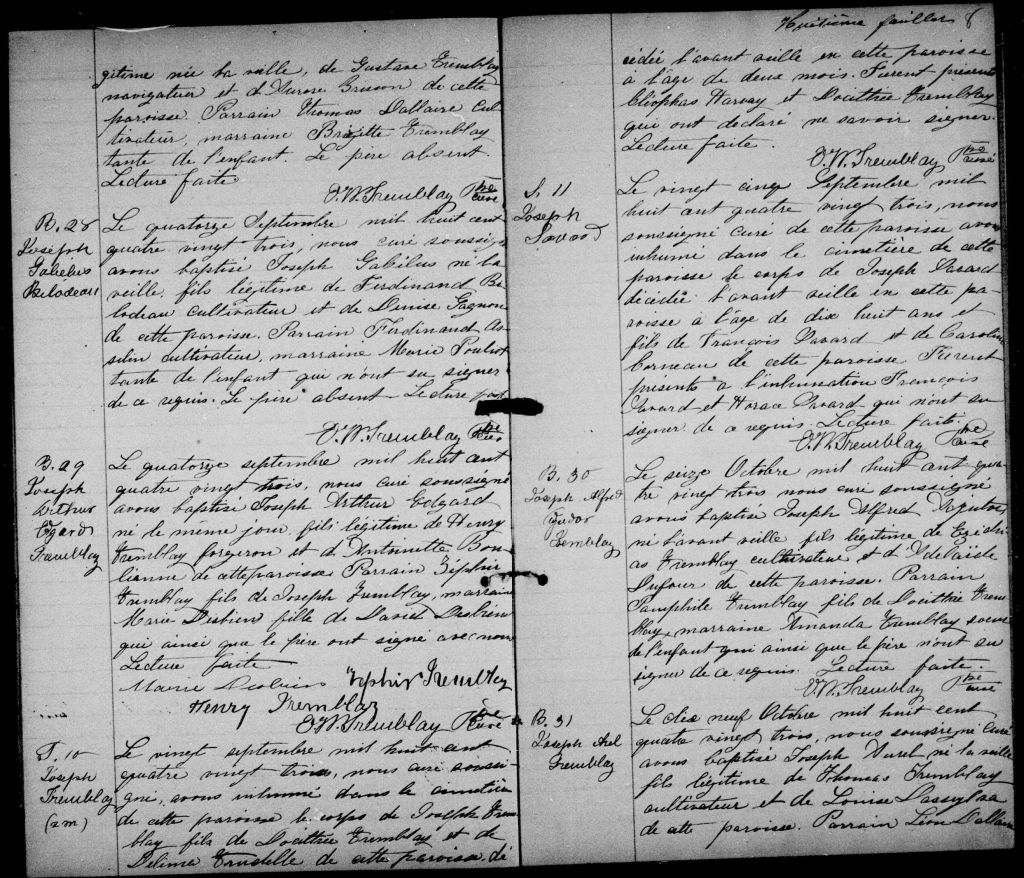 gitime née la veille, de Gustave Tremblay
navigateur et d'Aurore Brisson de cette
paroisse. Parrain Thomas Dallaire cul-
tivateur, marraine Brigitte Tremblay
tante de l'enfant. Le père absent.
Lecture faite
O.W. Tremblay Ptre curé
B. 28
Joseph
Gabelus
Bilodeau
Le quatorze Septembre mil huit cent
quatre vingt trois, nous curé soussigné
avons baptisé Joseph Gabélus né la
veille, fils légitime de Ferdinand Bi-
lodeau cultivateur et de Denise Gagnon
de cette paroisse. Parrain Ferdinand As-
selin cultivateur, marraine Marie Pouliot
tante de l'enfant qui n'ont su signer
de ce requis. Le père absent. Lecture
O.W. Tremblay Ptre curé
B. 29
Joseph
Arthur
Egard
Tremblay
Le quatorze septembre mil huit cent
quatre vingt trois, nous curé soussigné
avons baptisé Joseph Arthur Edgard
né le même jour, fils légitime de Henry
Tremblay forgeron et d'Antoinette Bou-
lianne de cette paroisse. Parrain Zéphir
Tremblay fils de Joseph Tremblay, marraine
Marie Desbien fille de David Desbien
qui ainsi que le père ont signé avec nous
Lecture faite
Marie Desbiens Zéphir Tremblay
Henry Tremblay
O.W. Tremblay Ptre curé
S. 10
Joseph
Tremblay
(2 m)
Le vingt septembre mil huit cent
quatre vingt trois, nous curé soussi-
gné, avons inhumé dans le cimetière
de cette paroisse le corps de Joseph Trem-
blay fils de Dosithée Tremblay et de
Délima Trudelle de cette paroisse, dé
Huitième feuillet 8
cédée l'avant veille en cette paroisse
à l'âge de deux mois. Furent présents
Cléophas Harvay et Dosithée Tremblay
qui ont déclaré ne savoir signer.
Lecture faite.
O.W. Tremblay Ptre curé
S. 11
Joseph
Savard
Le vingt cinq Septembre mil
huit cent quatre vingt trois, nous
soussigné curé de cette paroisse avons
inhumé dans le cimetière de cette
paroisse le corps de Joseph Savard
décédée l'avant veille en cette pa-
roisse à l'âge de dix huit ans et
fils de François Savard et de Caroline
Corneau de cette paroisse. Furent
présents à l'inhumation François
Savard et Horace Savard qui n'ont su
signer de ce requis. Lecture faite.
O.W. Tremblay Ptre curé
B. 30
Joseph Alfred
Tremblay
Le seize Octobre mil huit cent qua-
tre vingt trois nous curé soussigné
avons baptisé Joseph Alfred
né l'avant veille fils légitime de
as Tremblay cultivateur et d'Adelaïde
Dufour de cette paroisse. Parrain
Pamphile Tremblay fils de Dosithée Trem-
blay, marraine Amanda Tremblay soeur
de l'enfant qui ainsi que le père n'ont su
signer de ce requis. Lecture faite.
O.W. Tremblay Ptre curé
B. 31
Joseph Axel
Tremblay
Le dix neuf Octobre mil huit cent
quatre vingt trois, nous soussigné curé
avons baptisé Joseph né la veille
fils légitime de Thomas Tremblay
cultivateur et de Louise
de cette paroisse. Parrain Léon Dallaire